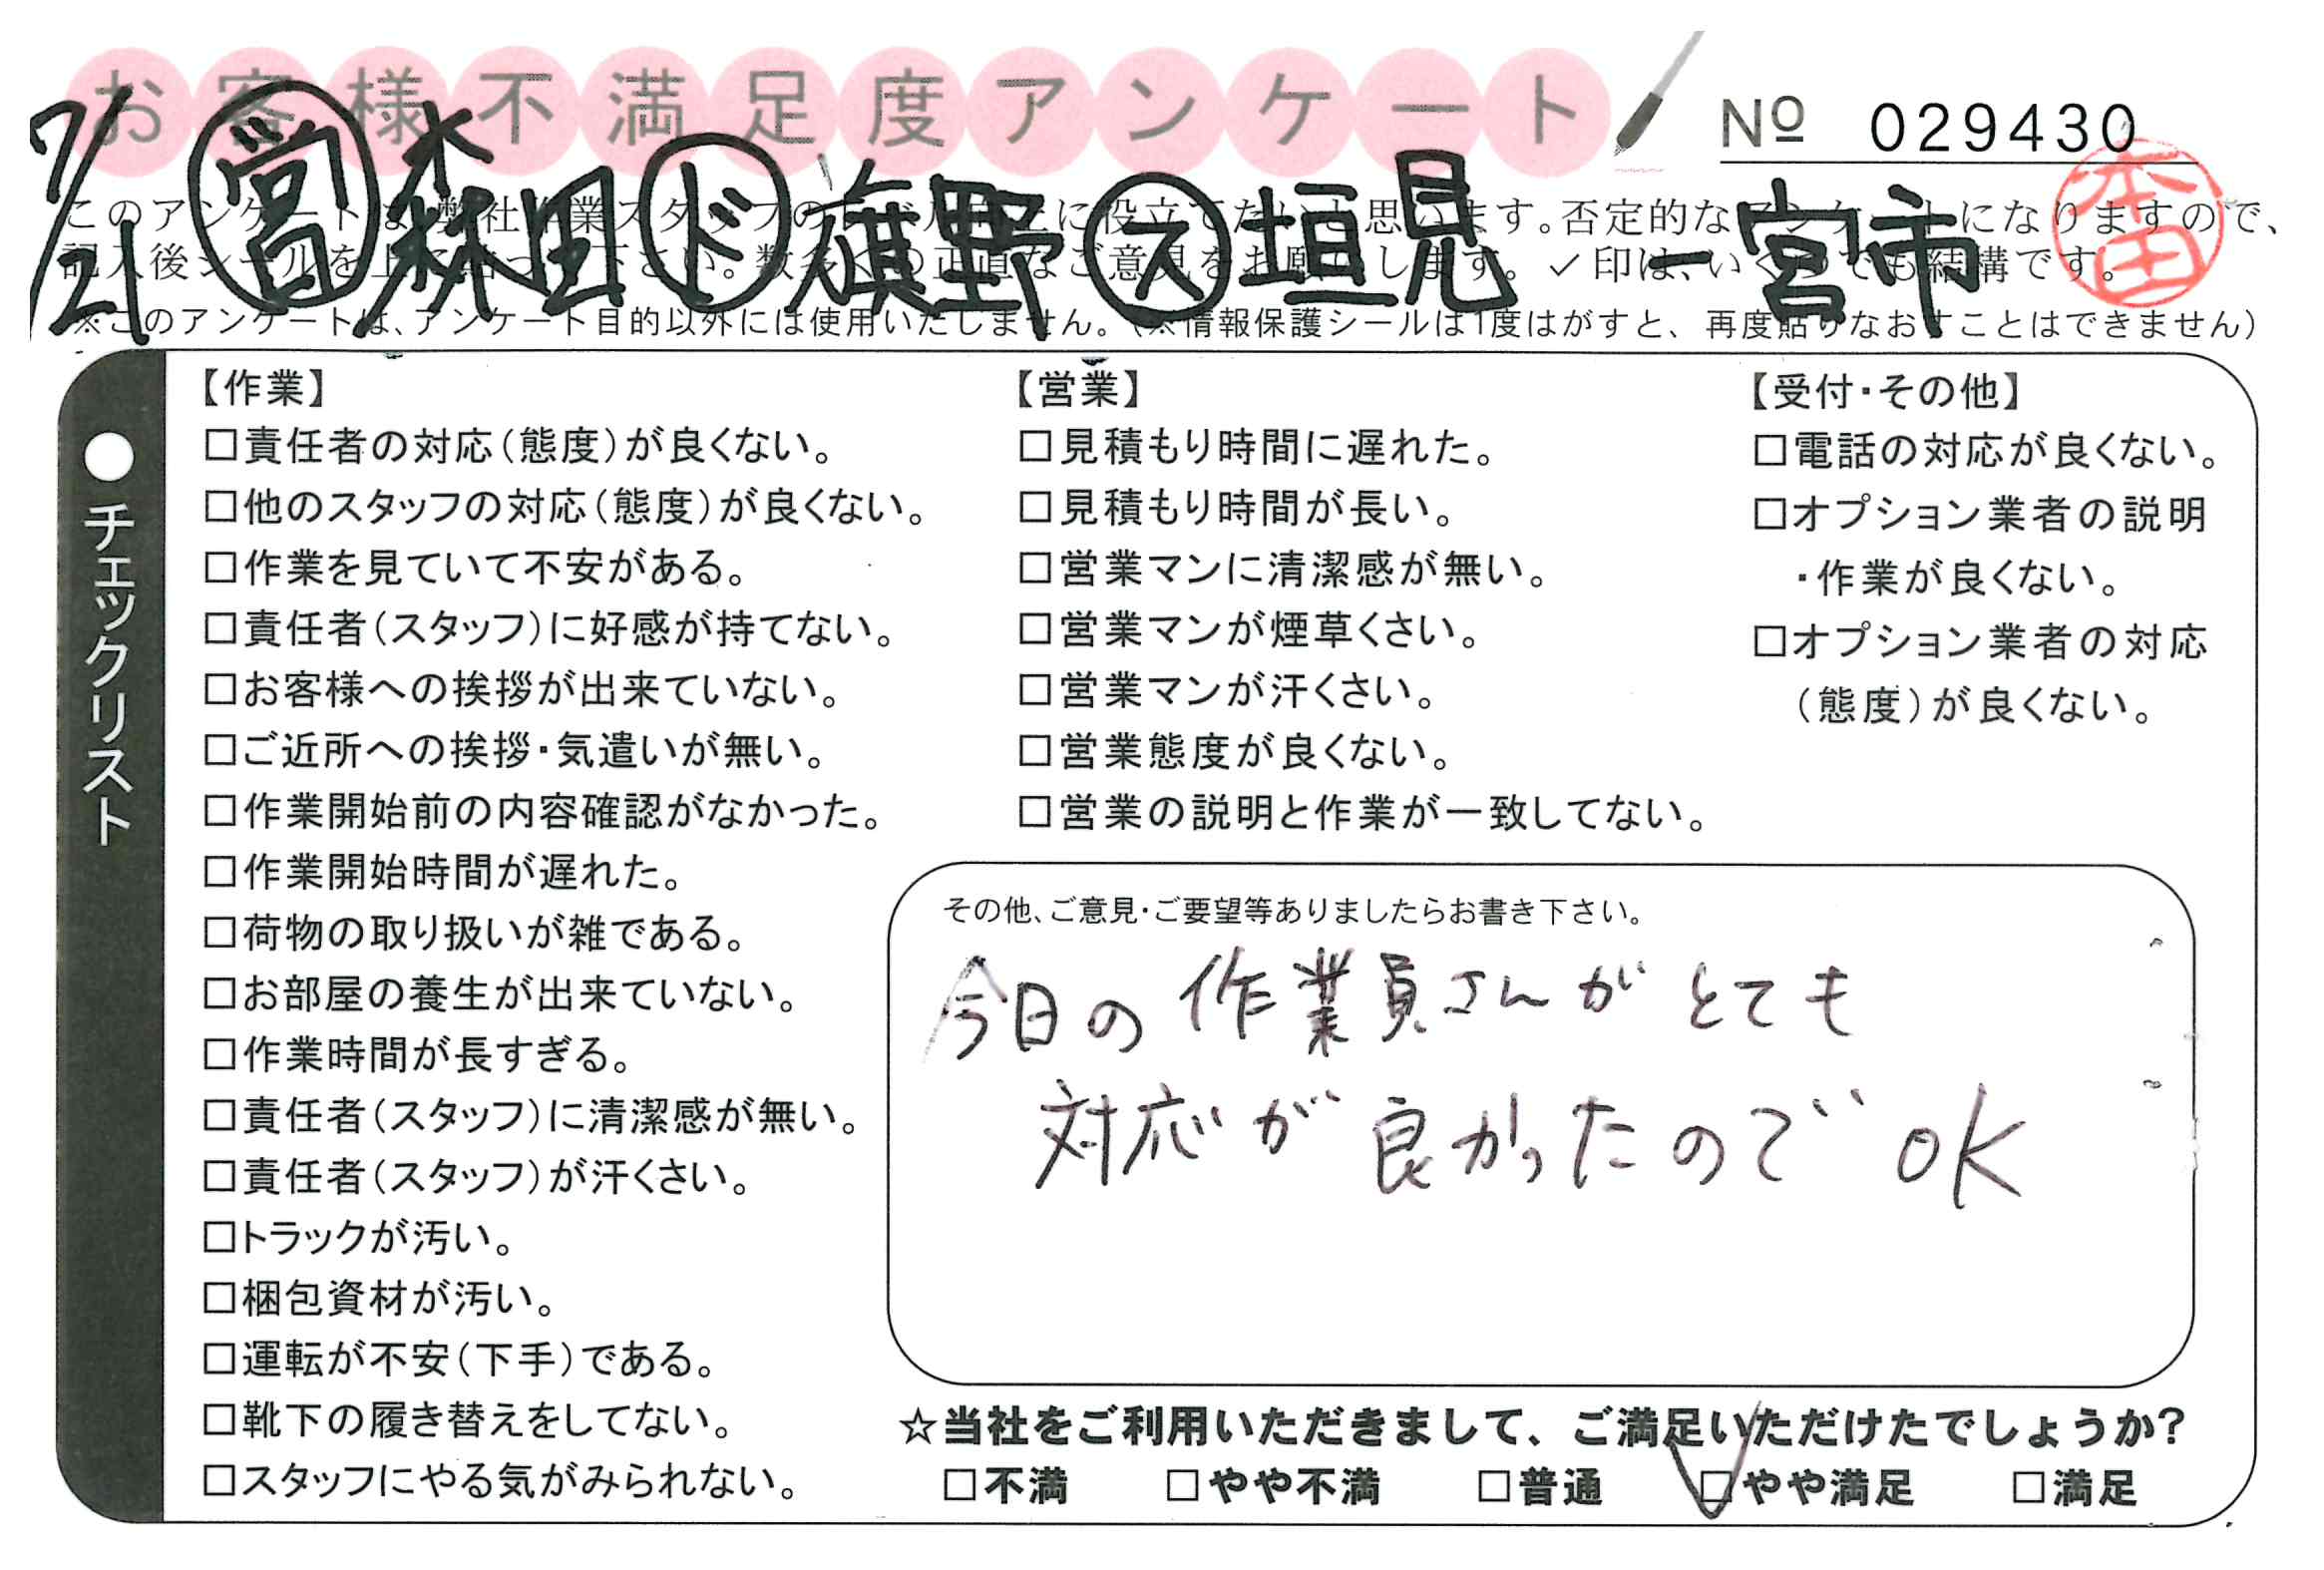 お客様不満足度アンケート
№ 029430
7/21 営 森田 ド 旗野 ス 垣見 一宮市
本田
このアンケートは、弊社作業スタッフの に役立てたいと思います。否定的なアンケートになりますので、
記入後シールを上に貼って下さい。数多くの正直なご意見をお願いします。✓印は、いくつでも結構です。
※このアンケートは、アンケート目的以外には使用いたしません。(※情報保護シールは1度はがすと、再度貼りなおすことはできません)
●チェックリスト
【作業】
□責任者の対応(態度)が良くない。
□他のスタッフの対応(態度)が良くない。
□作業を見ていて不安がある。
□責任者(スタッフ)に好感が持てない。
□お客様への挨拶が出来ていない。
□ご近所への挨拶・気遣いが無い。
□作業開始前の内容確認がなかった。
□作業開始時間が遅れた。
□荷物の取り扱いが雑である。
□お部屋の養生が出来ていない。
□作業時間が長すぎる。
□責任者(スタッフ)に清潔感が無い。
□責任者(スタッフ)が汗くさい。
□トラックが汚い。
□梱包資材が汚い。
□運転が不安(下手)である。
□靴下の履き替えをしてない。
□スタッフにやる気がみられない。
【営業】
□見積もり時間に遅れた。
□見積もり時間が長い。
□営業マンに清潔感が無い。
□営業マンが煙草くさい。
□営業マンが汗くさい。
□営業態度が良くない。
□営業の説明と作業が一致してない。
【受付・その他】
□電話の対応が良くない。
□オプション業者の説明
・作業が良くない。
□オプション業者の対応
(態度)が良くない。
その他、ご意見・ご要望等ありましたらお書き下さい。
今日の作業員さんがとても
対応が良かったのでOK
☆当社をご利用いただきまして、ご満足いただけたでしょうか?
□不満 □やや不満 □普通 ☑やや満足 □満足